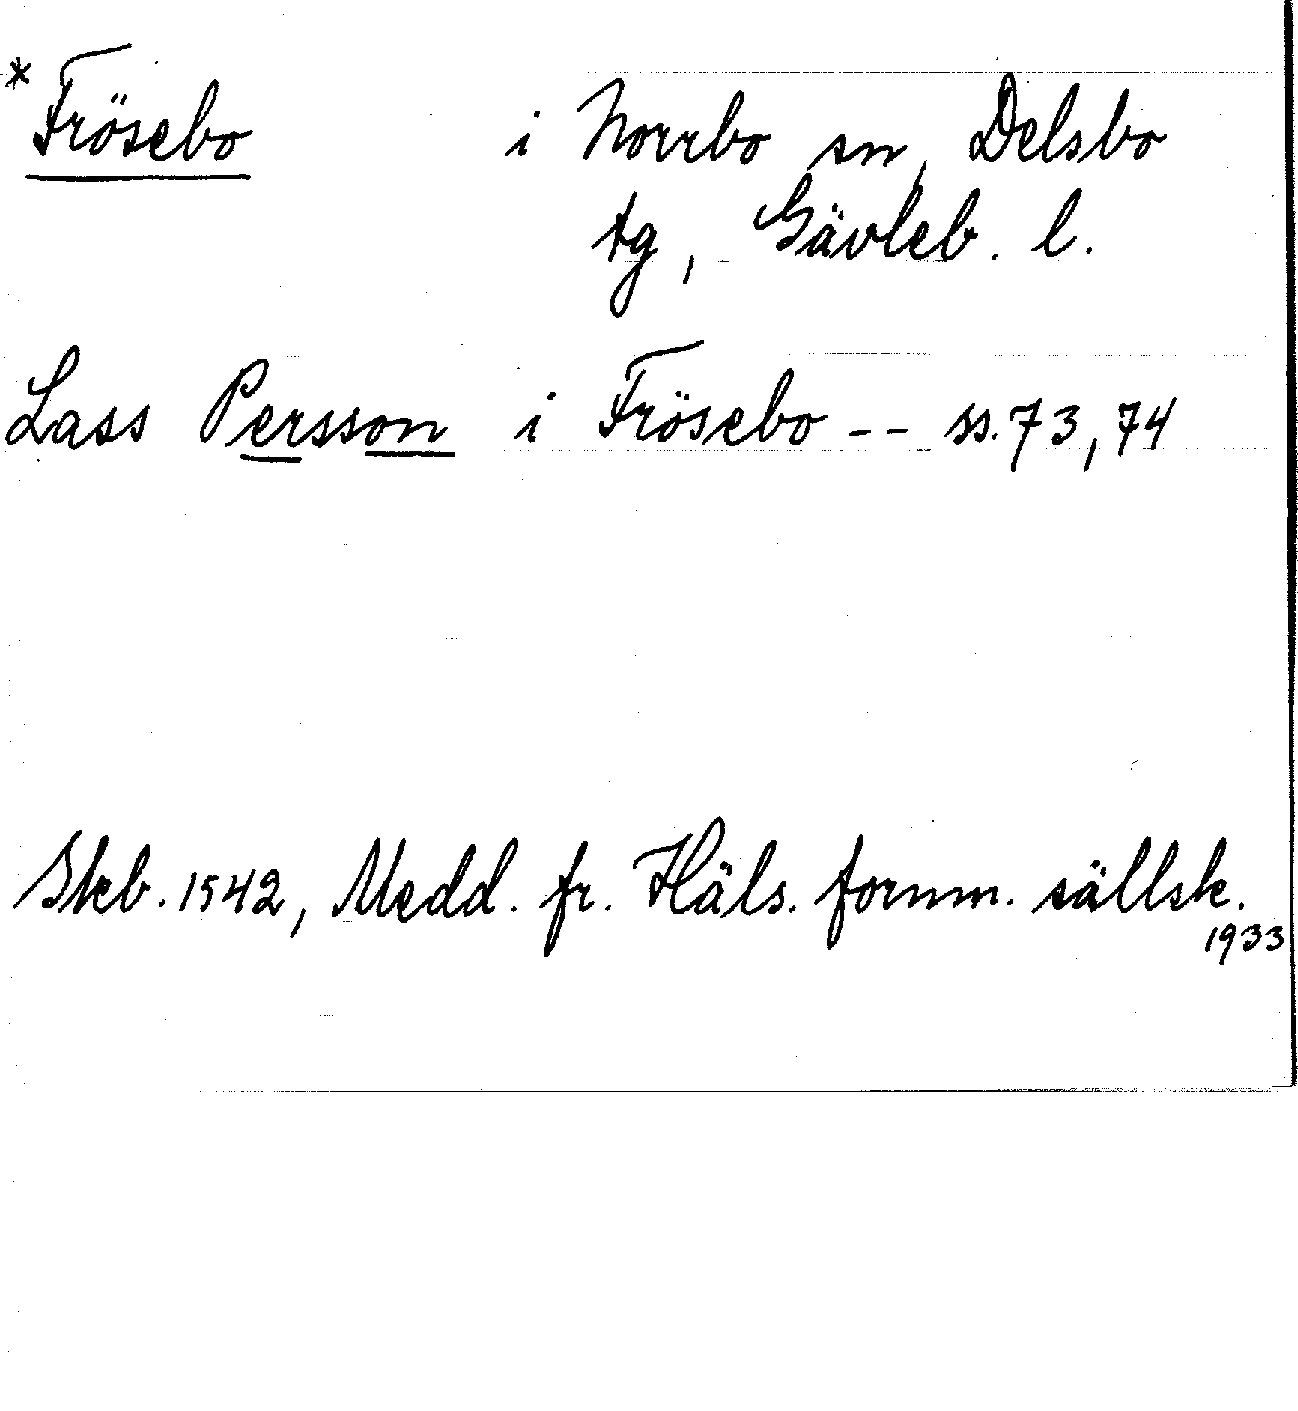 * Frösebo i Norrbo sn, Delsbo
tg, Gävleb. l.
Lass Persson i Frösebo -- ss. 73, 74
Skb. 1542, Medd. fr. Häls. fornm. sällsk.
1933